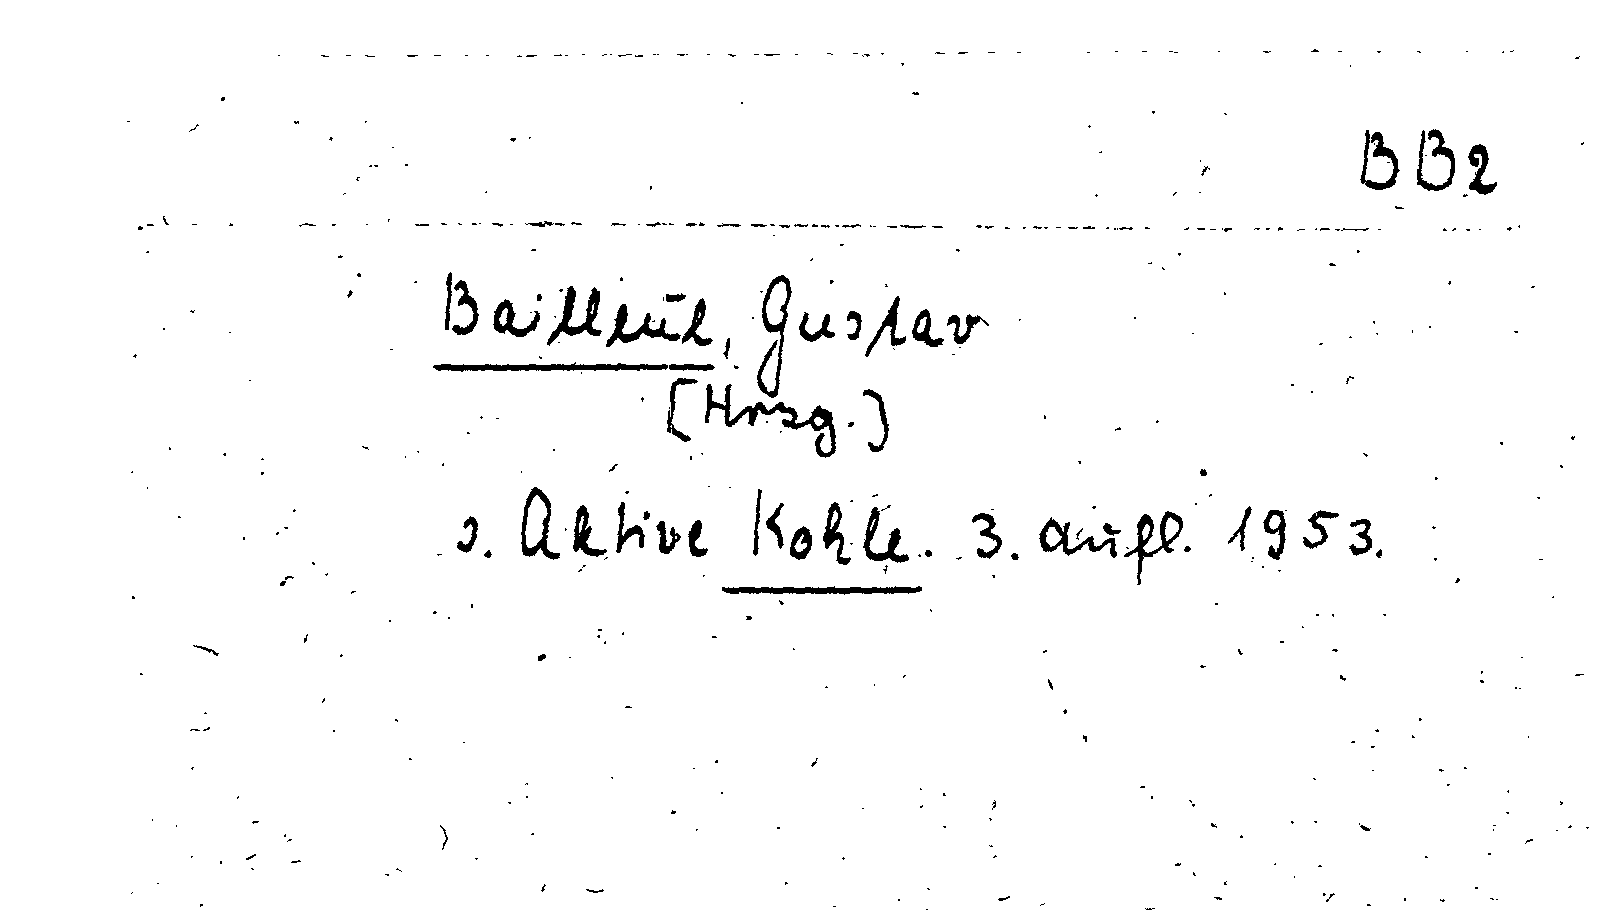 BB2
Bailleul, Gustav
[Hrsg.]
s. Aktive Kohle. 3. Aufl. 1953.